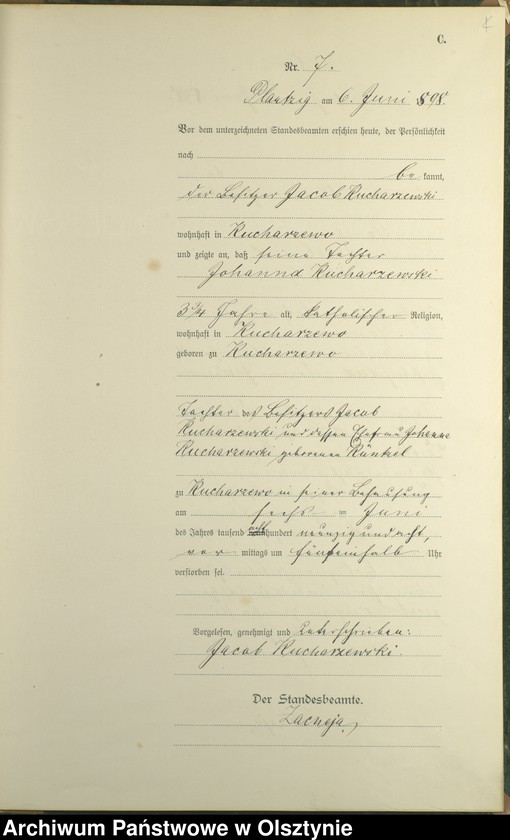 C.
Nr. 7.
Plautzig am 6. Juni 1898.
Vor dem unterzeichneten Standesbeamten erschien heute, der Persönlichkeit
nach
be kannt,
der Besitzer Jacob Kucharzewski
wohnhaft in Kucharzewo
und zeigte an, daß seine Tochter
Johanna Kucharzewski
3 3/4 Jahre alt, katholischer Religion,
wohnhaft in Kucharzewo
geboren zu Kucharzewo
Tochter des Besitzers Jacob
Kucharzewski und dessen Ehefrau Johanna
Kucharzewski geborenen Künkel
zu Kucharzewo in seiner Behausung
am sechsten Juni
des Jahres tausend acht hundert neunzig und acht,
vor mittags um fünfeinhalb Uhr
verstorben sei.
Vorgelesen, genehmigt und unterschrieben:
Jacob Kucharzewski.
Der Standesbeamte.
Archiwum Państwowe w Olsztynie